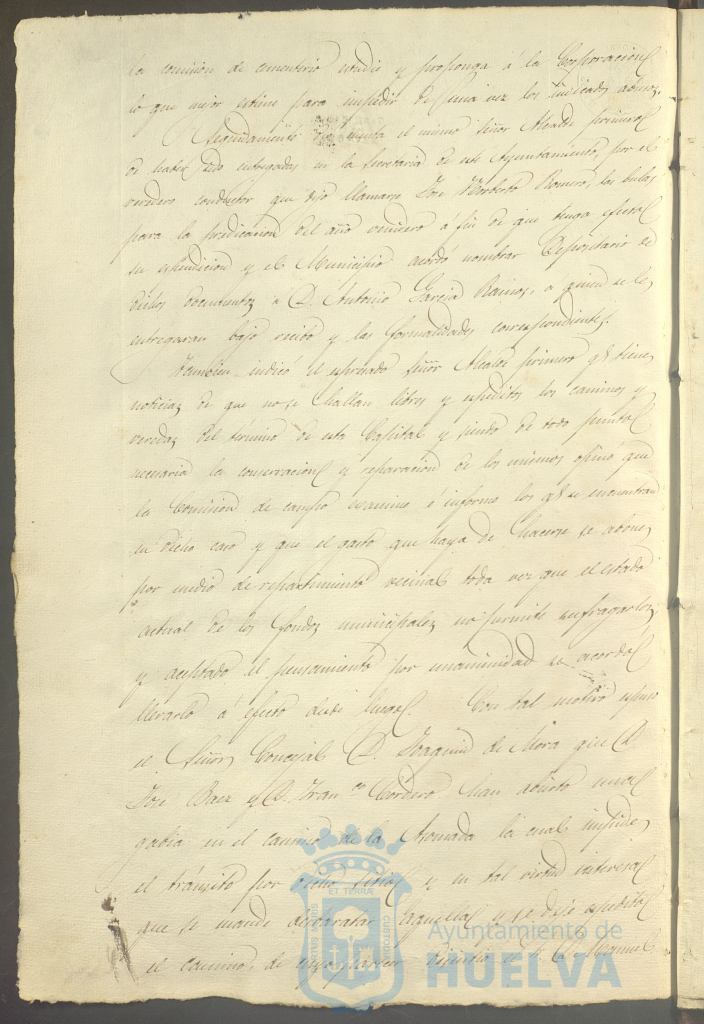 la comision de cementerio estudie y proponga á la Corporacion
lo que mejor estime para impedir de una vez los indicados abusos.
Seguidamente dió cuenta el mismo Señor Alcalde primero
de haber sido entregadas en la Secretaría de este Ayuntamiento, por el
veredero conductor que dijo llamarse José Norberto Romero, las bulas
para la predicacion del año venidero á fin de que tenga efecto
su espendicion y el Municipio acordó nombrar Depositario de
dichos documentos á D. Antonio Garcia Ramos, a quien se le
entregaran bajo recibo y las formalidades correspondientes.
Tambien indicó el espresado Señor Alcalde primero q.e tiene
noticias de que no se hallan libres y espeditos los caminos y
veredas del término de esta Capital y siendo de todo punto
necesaria la conservacion y reparacion de los mismos opinó que
la Comision de campo examine é informe los q.e se encuentran
en dicho caso y que el gasto que haya de hacerse se abone
por medio de repartimiento vecinal toda vez que el estado
actual de los fondos municipales no permite sufragarlos,
y aceptado el pensamiento por unanimidad se acordó
llevarlo á efecto desde luego. Con tal motivo espuso
el Señor Concejal D. Joaquin de Mora que D.
José Baez y D. Fran.co Cordero han abierto una
gabia en el camino de la la cual impide
el tránsito por dicho sitio y en tal virtud interesa
que se mande desbaratar aquella y se deje espedito
el camino, de cuyo parecer disintió el S. D. Manuel
ET TERRÆ
CUSTODIA
Ayuntamiento de
HUELVA